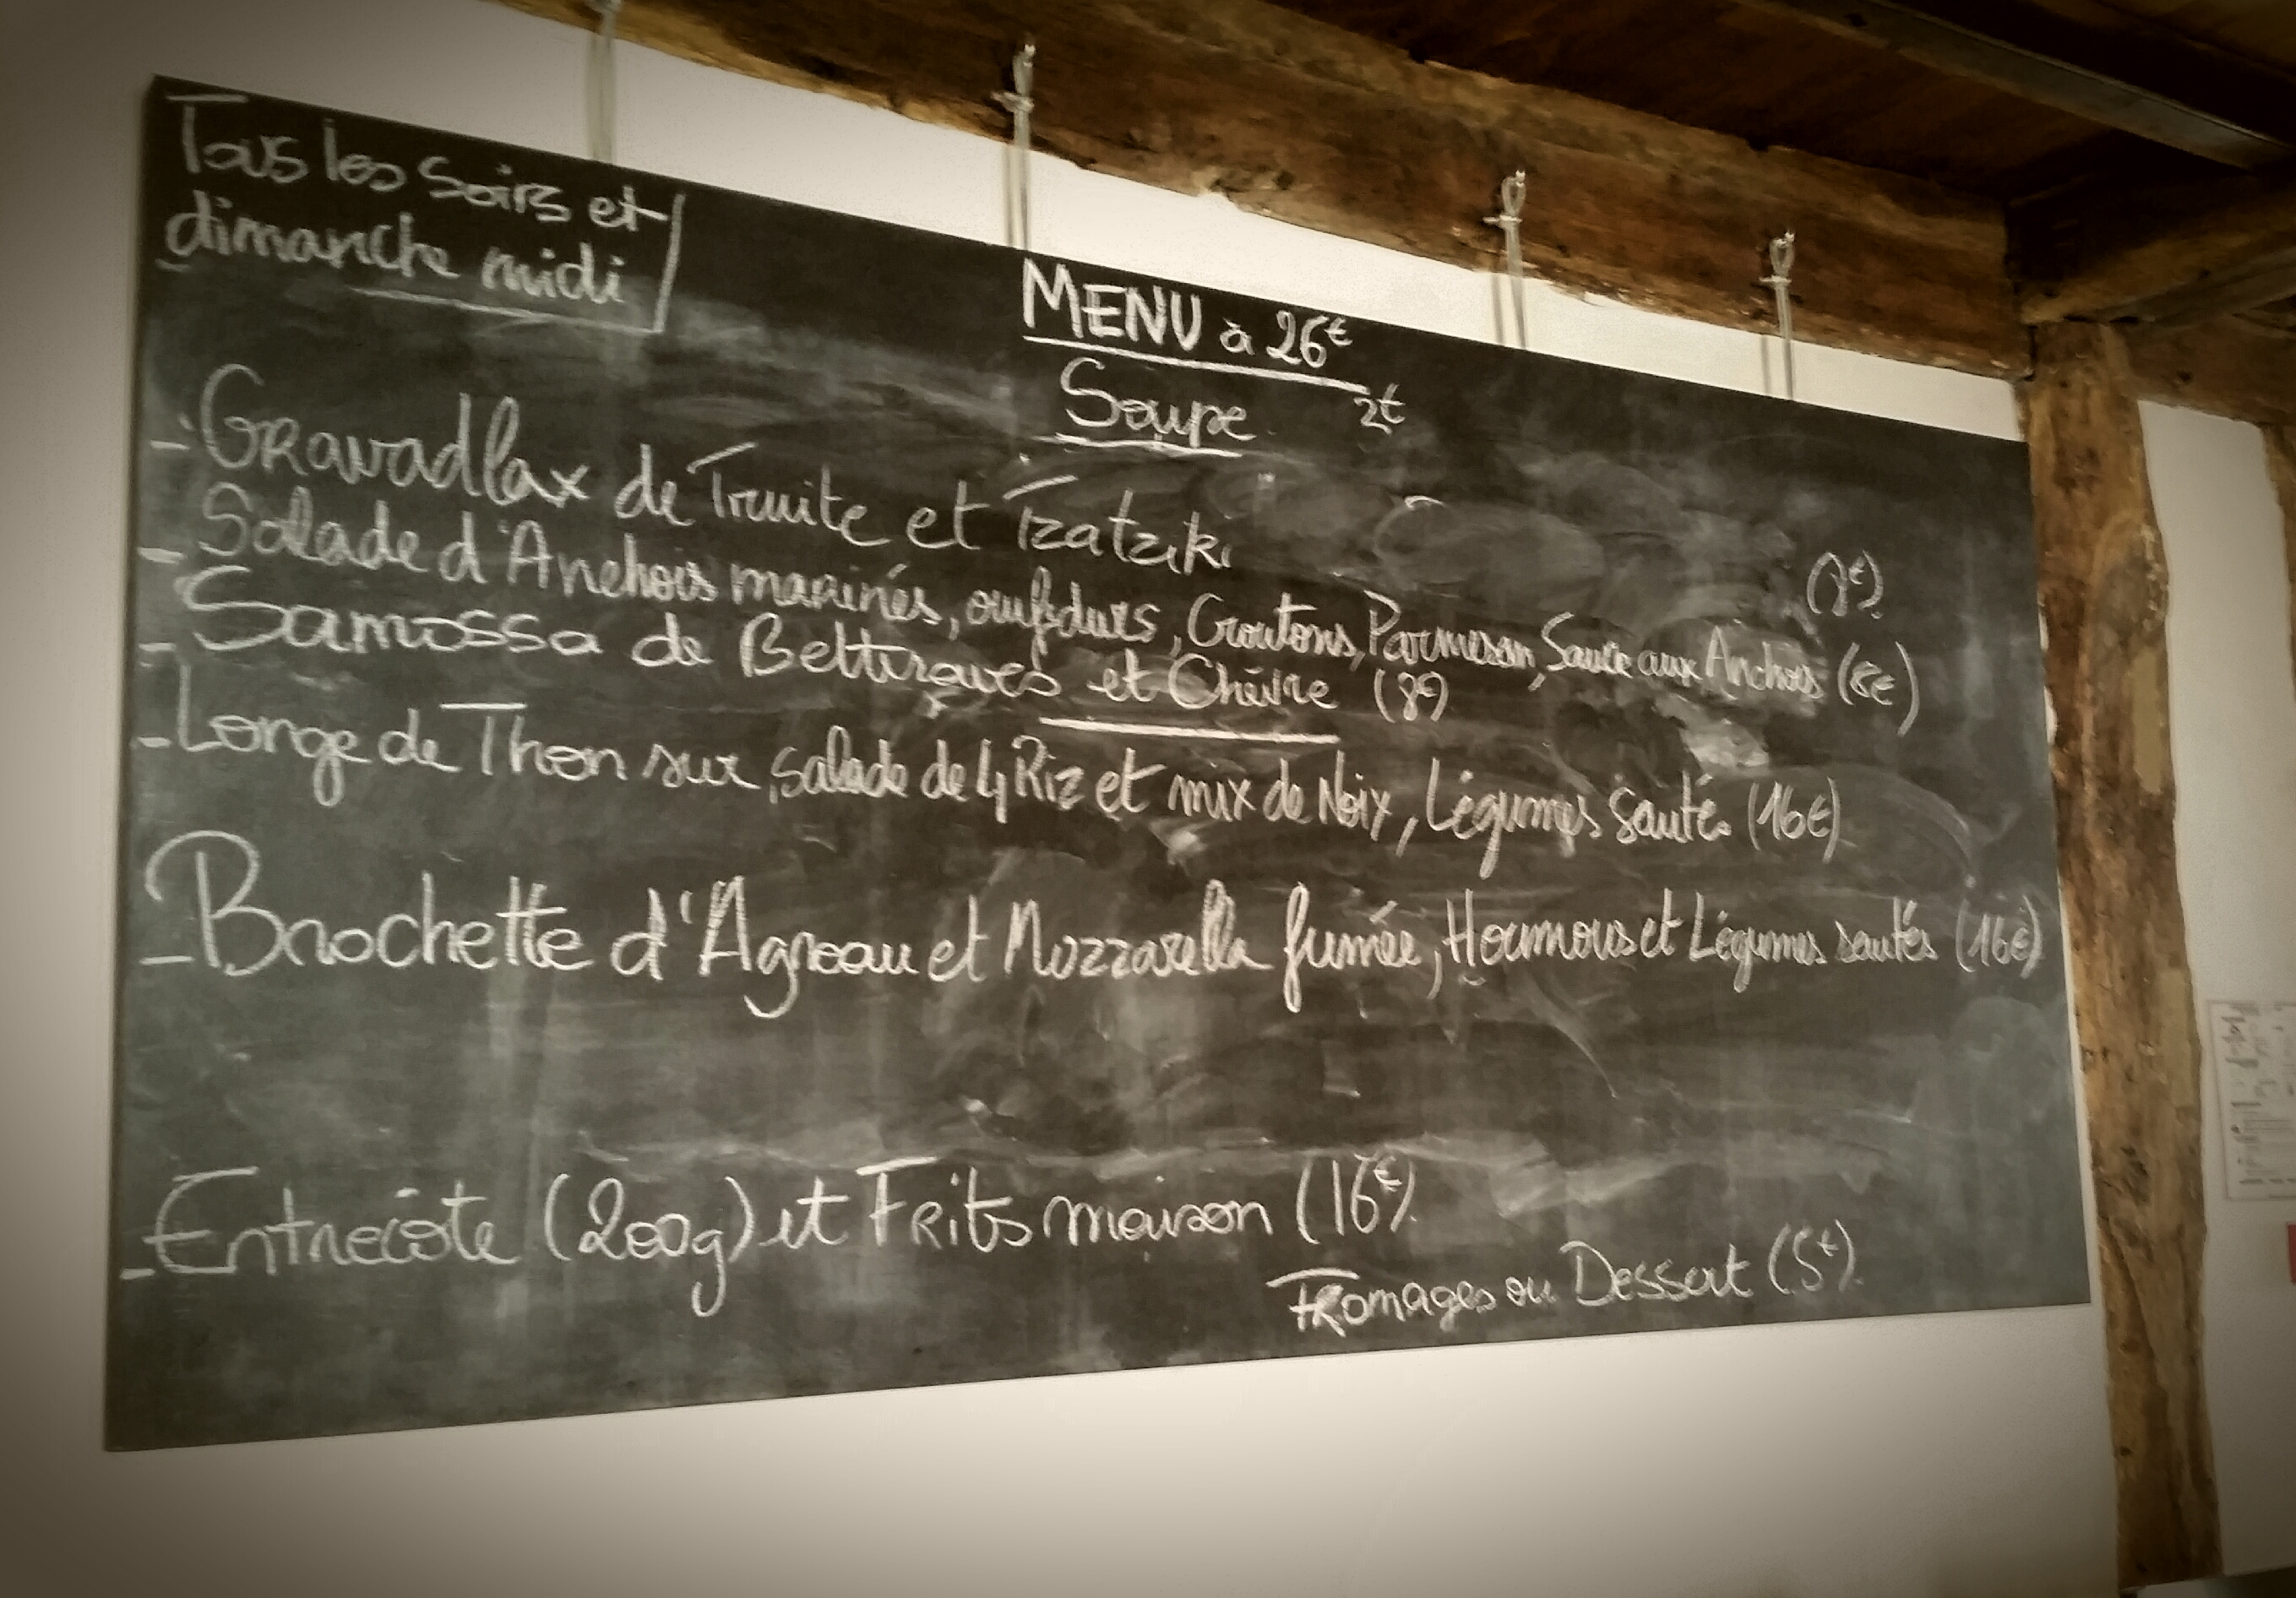 Tous les Soirs et
dimanche midi
MENU à 26€
Soupe 2€
- Gravadlax de Truite et Tzatziki (8€)
- Salade d'Anchois marinés, oeufs durs, Croutons, Parmesan, Sauce aux Anchois (8€)
- Samossa de Betteraves et Chèvre (8€)
- Longe de Thon sur salade de 4 Riz et mix de Noix, Légumes sautés (16€)
- Brochette d'Agneau et Mozzarella fumée, Houmous et Légumes sautés (16€)
- Entrecôte (200g) et Frites maison (16€)
Fromages ou Dessert (5€)